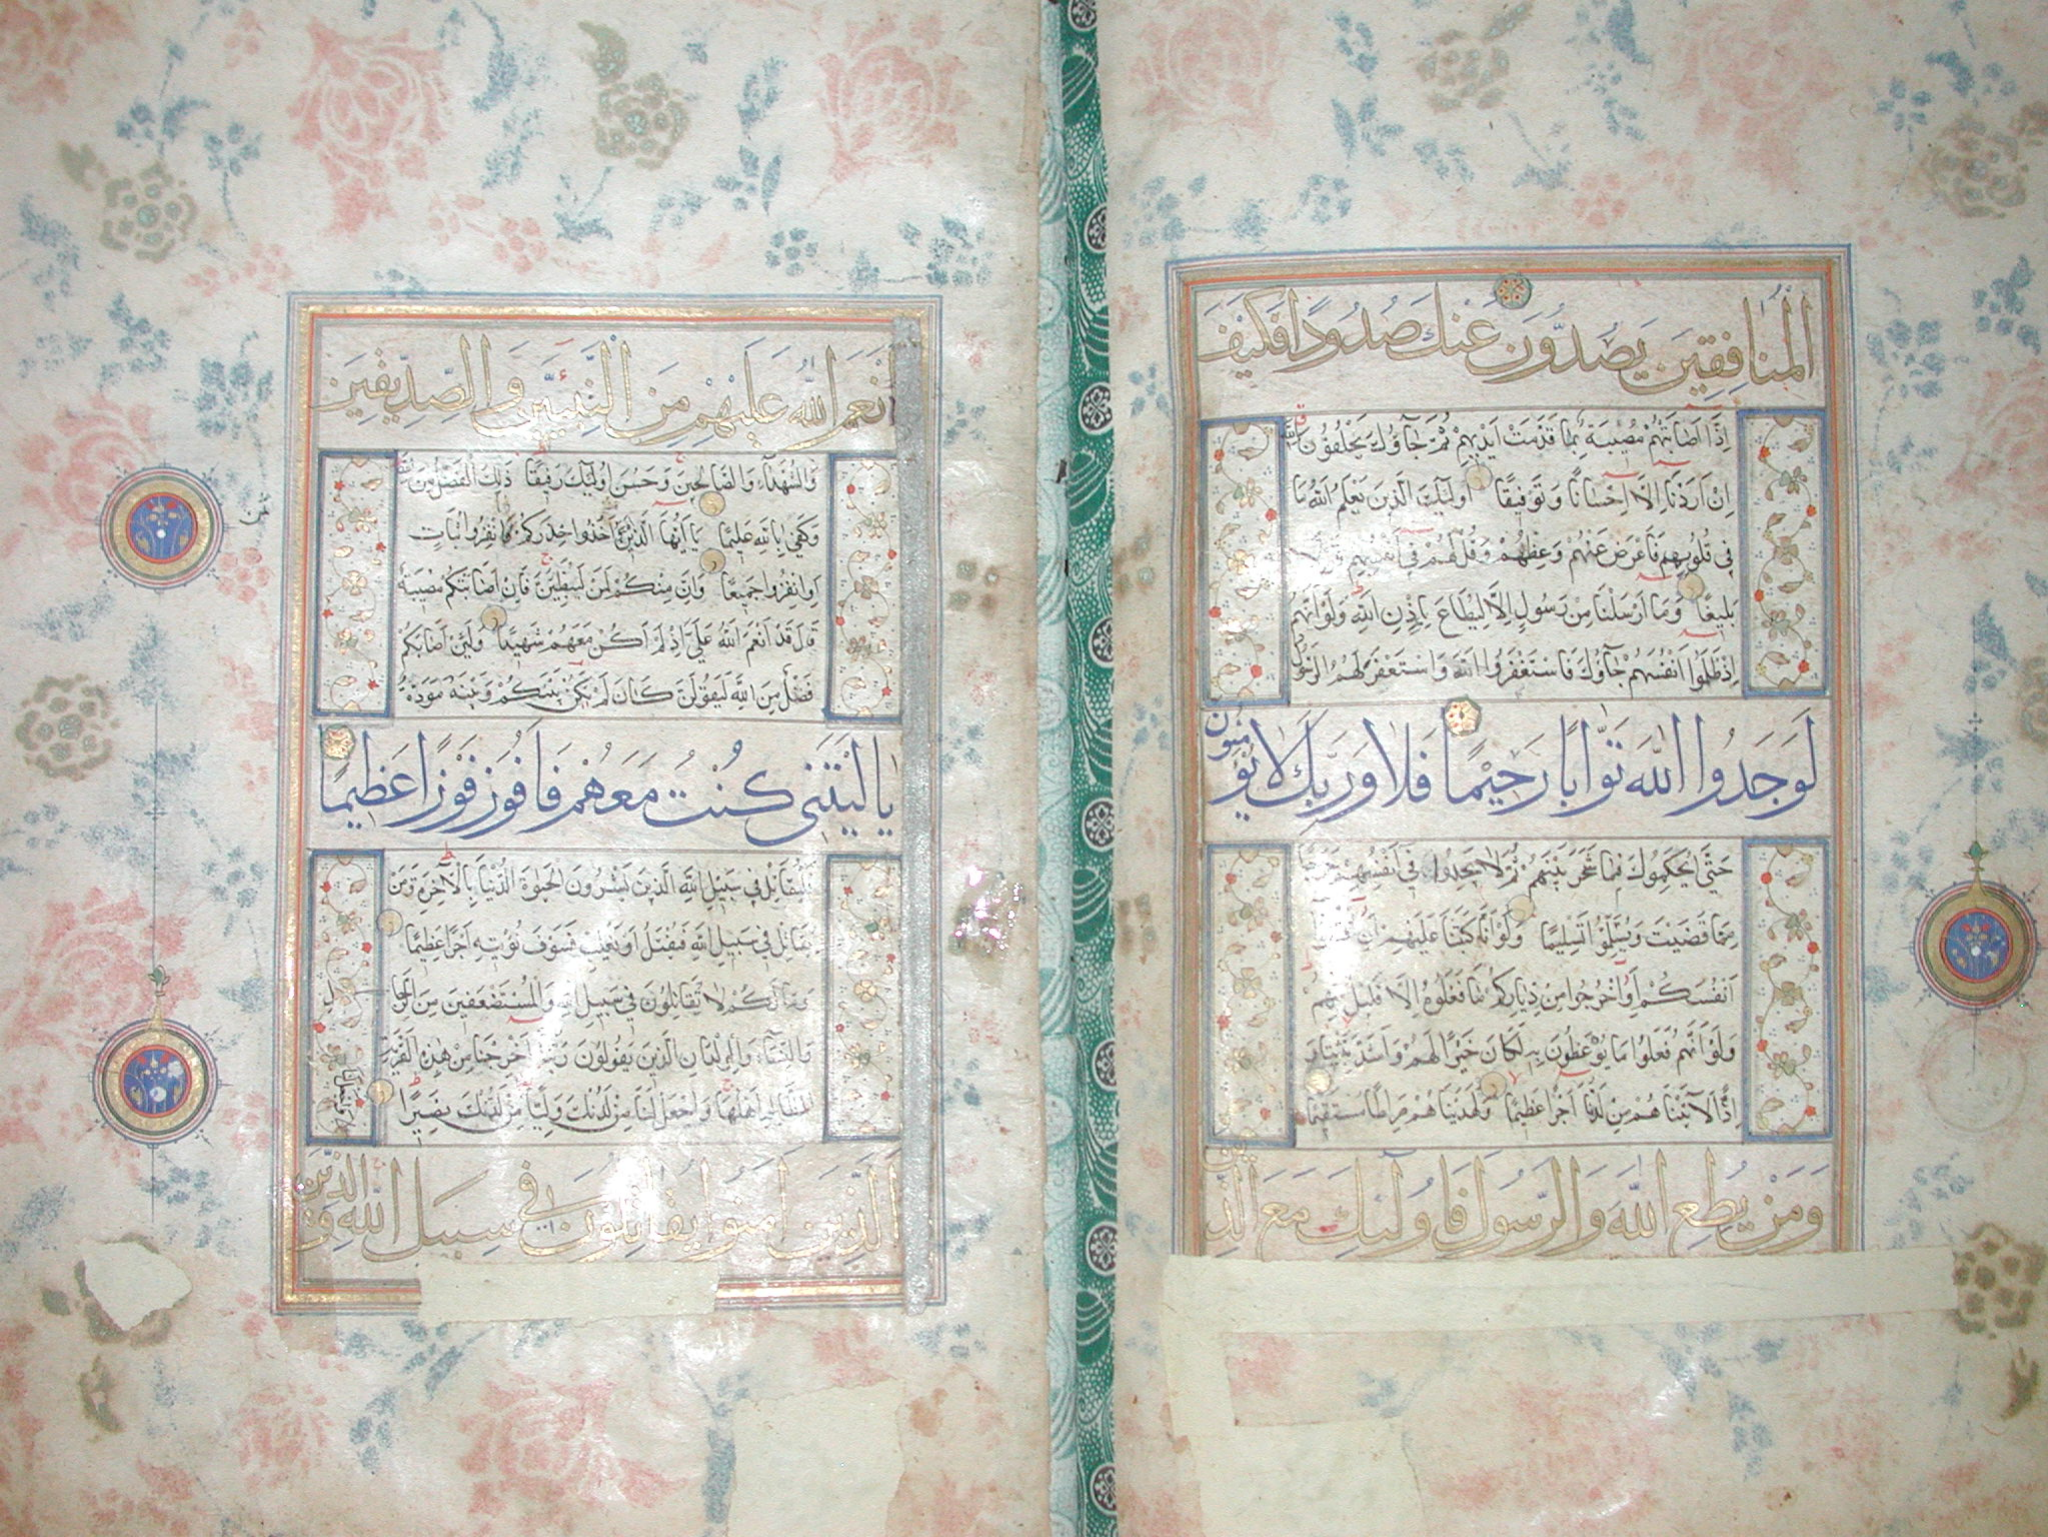 المنافقين يصدون عنك صدودا فكيف
إذا اصابتهم مصيبة بما قدمت ايديهم ثم جاؤك يحلفون بالله
ان اردنا الا احسانا وتوفيقا اولئك الذين يعلم الله ما
في قلوبهم فاعرض عنهم وعظهم وقل لهم في انفسهم قولا
بليغا وما ارسلنا من رسول الا ليطاع باذن الله ولو انهم
اذ ظلموا انفسهم جاؤك فاستغفروا الله واستغفر لهم الرسول
لوجدوا الله توابا رحيما فلا وربك لا يؤمنون
حتى يحكموك فيما شجر بينهم ثم لا يجدوا في انفسهم حرجا
مما قضيت ويسلموا تسليما ولو انا كتبنا عليهم ان اقتلوا
انفسكم او اخرجوا من دياركم ما فعلوه الا قليل منهم
ولو انهم فعلوا ما يوعظون به لكان خيرا لهم واشد تثبيتا و
اذا لآتيناهم من لدنا اجرا عظيما ولهديناهم صراطا مستقيما
ومن يطع الله والرسول فاولئك مع الذين
انعم الله عليهم من النبيين والصديقين
والشهداء والصالحين وحسن اولئك رفيقا ذلك الفضل من الله
وكفى بالله عليما يا ايها الذين آمنوا خذوا حذركم فانفروا ثبات
او انفروا جميعا وان منكم لمن ليبطئن فان اصابتكم مصيبة
قال قد انعم الله علي اذ لم اكن معهم شهيدا ولئن اصابكم
فضل من الله ليقولن كان لم يكن بينكم وبينه مودة
يا ليتني كنت معهم فافوز فوزا عظيما
فليقاتل في سبيل الله الذين يشرون الحيوة الدنيا بالآخرة ومن
يقاتل في سبيل الله فيقتل او يغلب فسوف نؤتيه اجرا عظيما
وما لكم لا تقاتلون في سبيل الله والمستضعفين من الرجال
والنساء والولدان الذين يقولون ربنا اخرجنا من هذه القرية
الظالم اهلها واجعل لنا من لدنك وليا واجعل لنا من لدنك نصيرا
الذين آمنوا يقاتلون في سبيل الله والذين